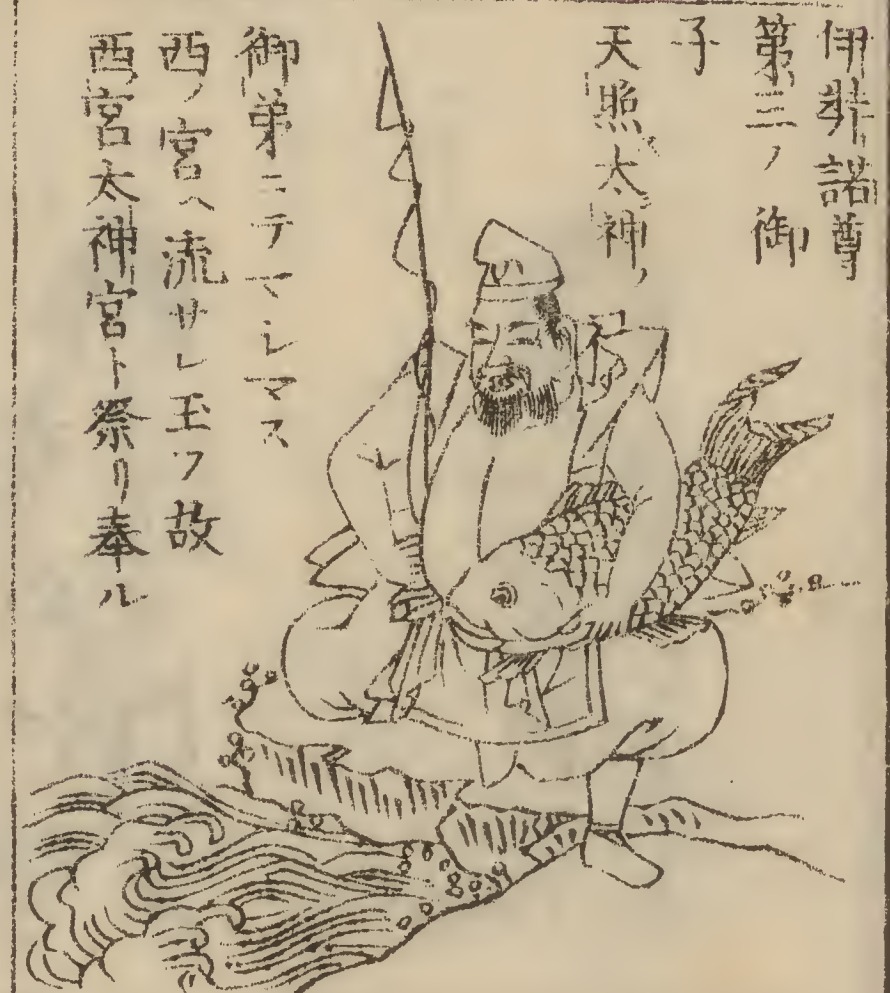 伊弉諾尊
第三ノ御
子
天照太神ノ
御弟ニテマシマス
西ノ宮ヘ流サレ玉フ故
西宮太神宮ト祭リ奉ル